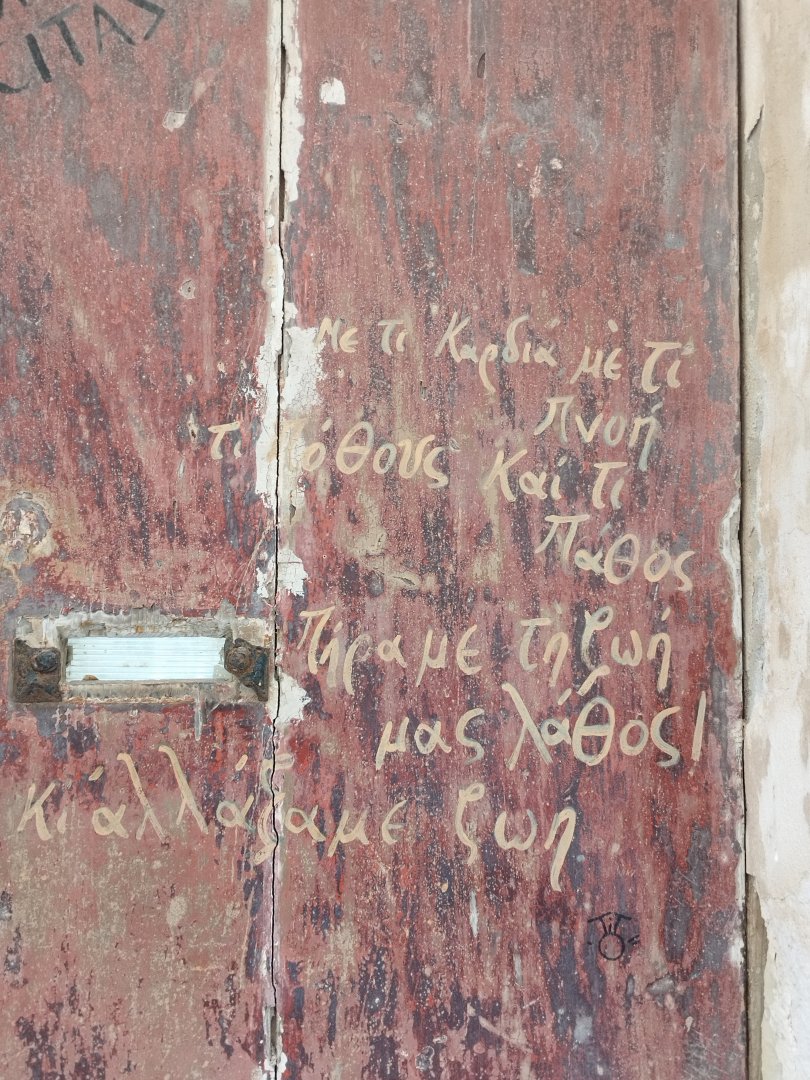 CITAS
Με τι Καρδιά μὲ τι
πνοή
τι πόθους Και τι
Πάθος
Πήραμε τὴ ζωή
μας λάθος!
κι ἀλλάξαμε ζωη